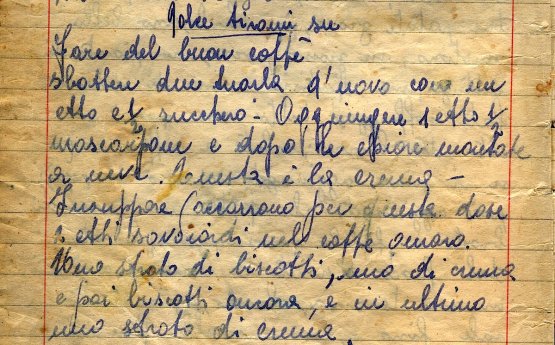 Dolce tirami su
Fare del buon caffè
sbattere due tuorla d'uovo con un
etto e ½ zucchero - Aggiungere 1 etto ½
mascarpone e dopo le chiare montate
a neve. Questa è la crema -
Inzuppare (occorrono per questa dose
etti savoiardi nel caffè amaro.
Uno strato di biscotti, uno di crema
e poi biscotti ancora, e in ultimo
uno strato di crema.